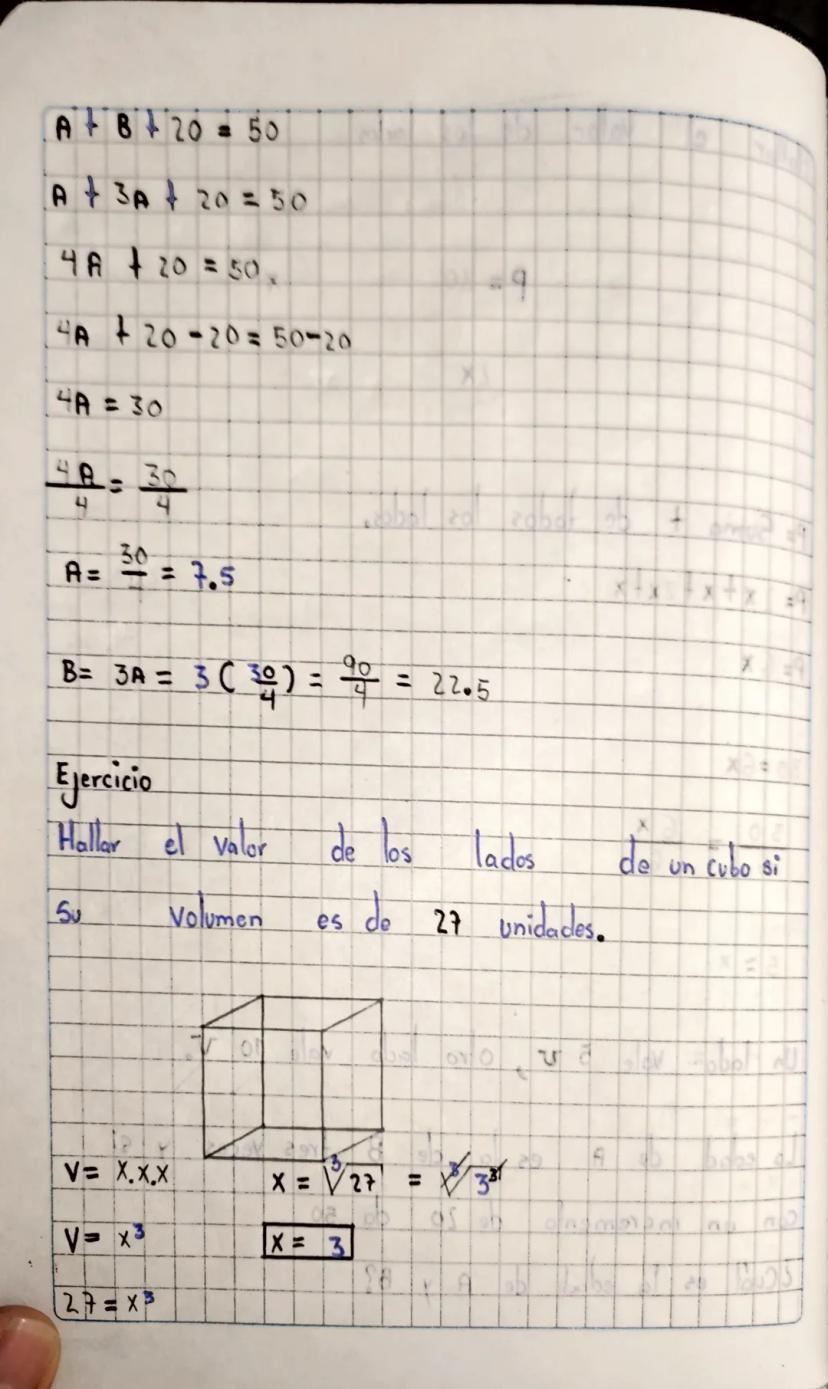 A + B + 20 = 50
A + 3A + 20 = 50
4A + 20 = 50.
4A + 20 - 20 = 50 - 20
4A = 30
4A/4 = 30/4
A = 30/ = 7.5
B = 3A = 3 (30/4) = 90/4 = 22.5
Ejercicio
Hallar el valor de los lados de un cubo si
su volumen es de 27 unidades.
V = X.X.X
X = ∛27 = ∛3³
V = x³
X = 3
27 = x³